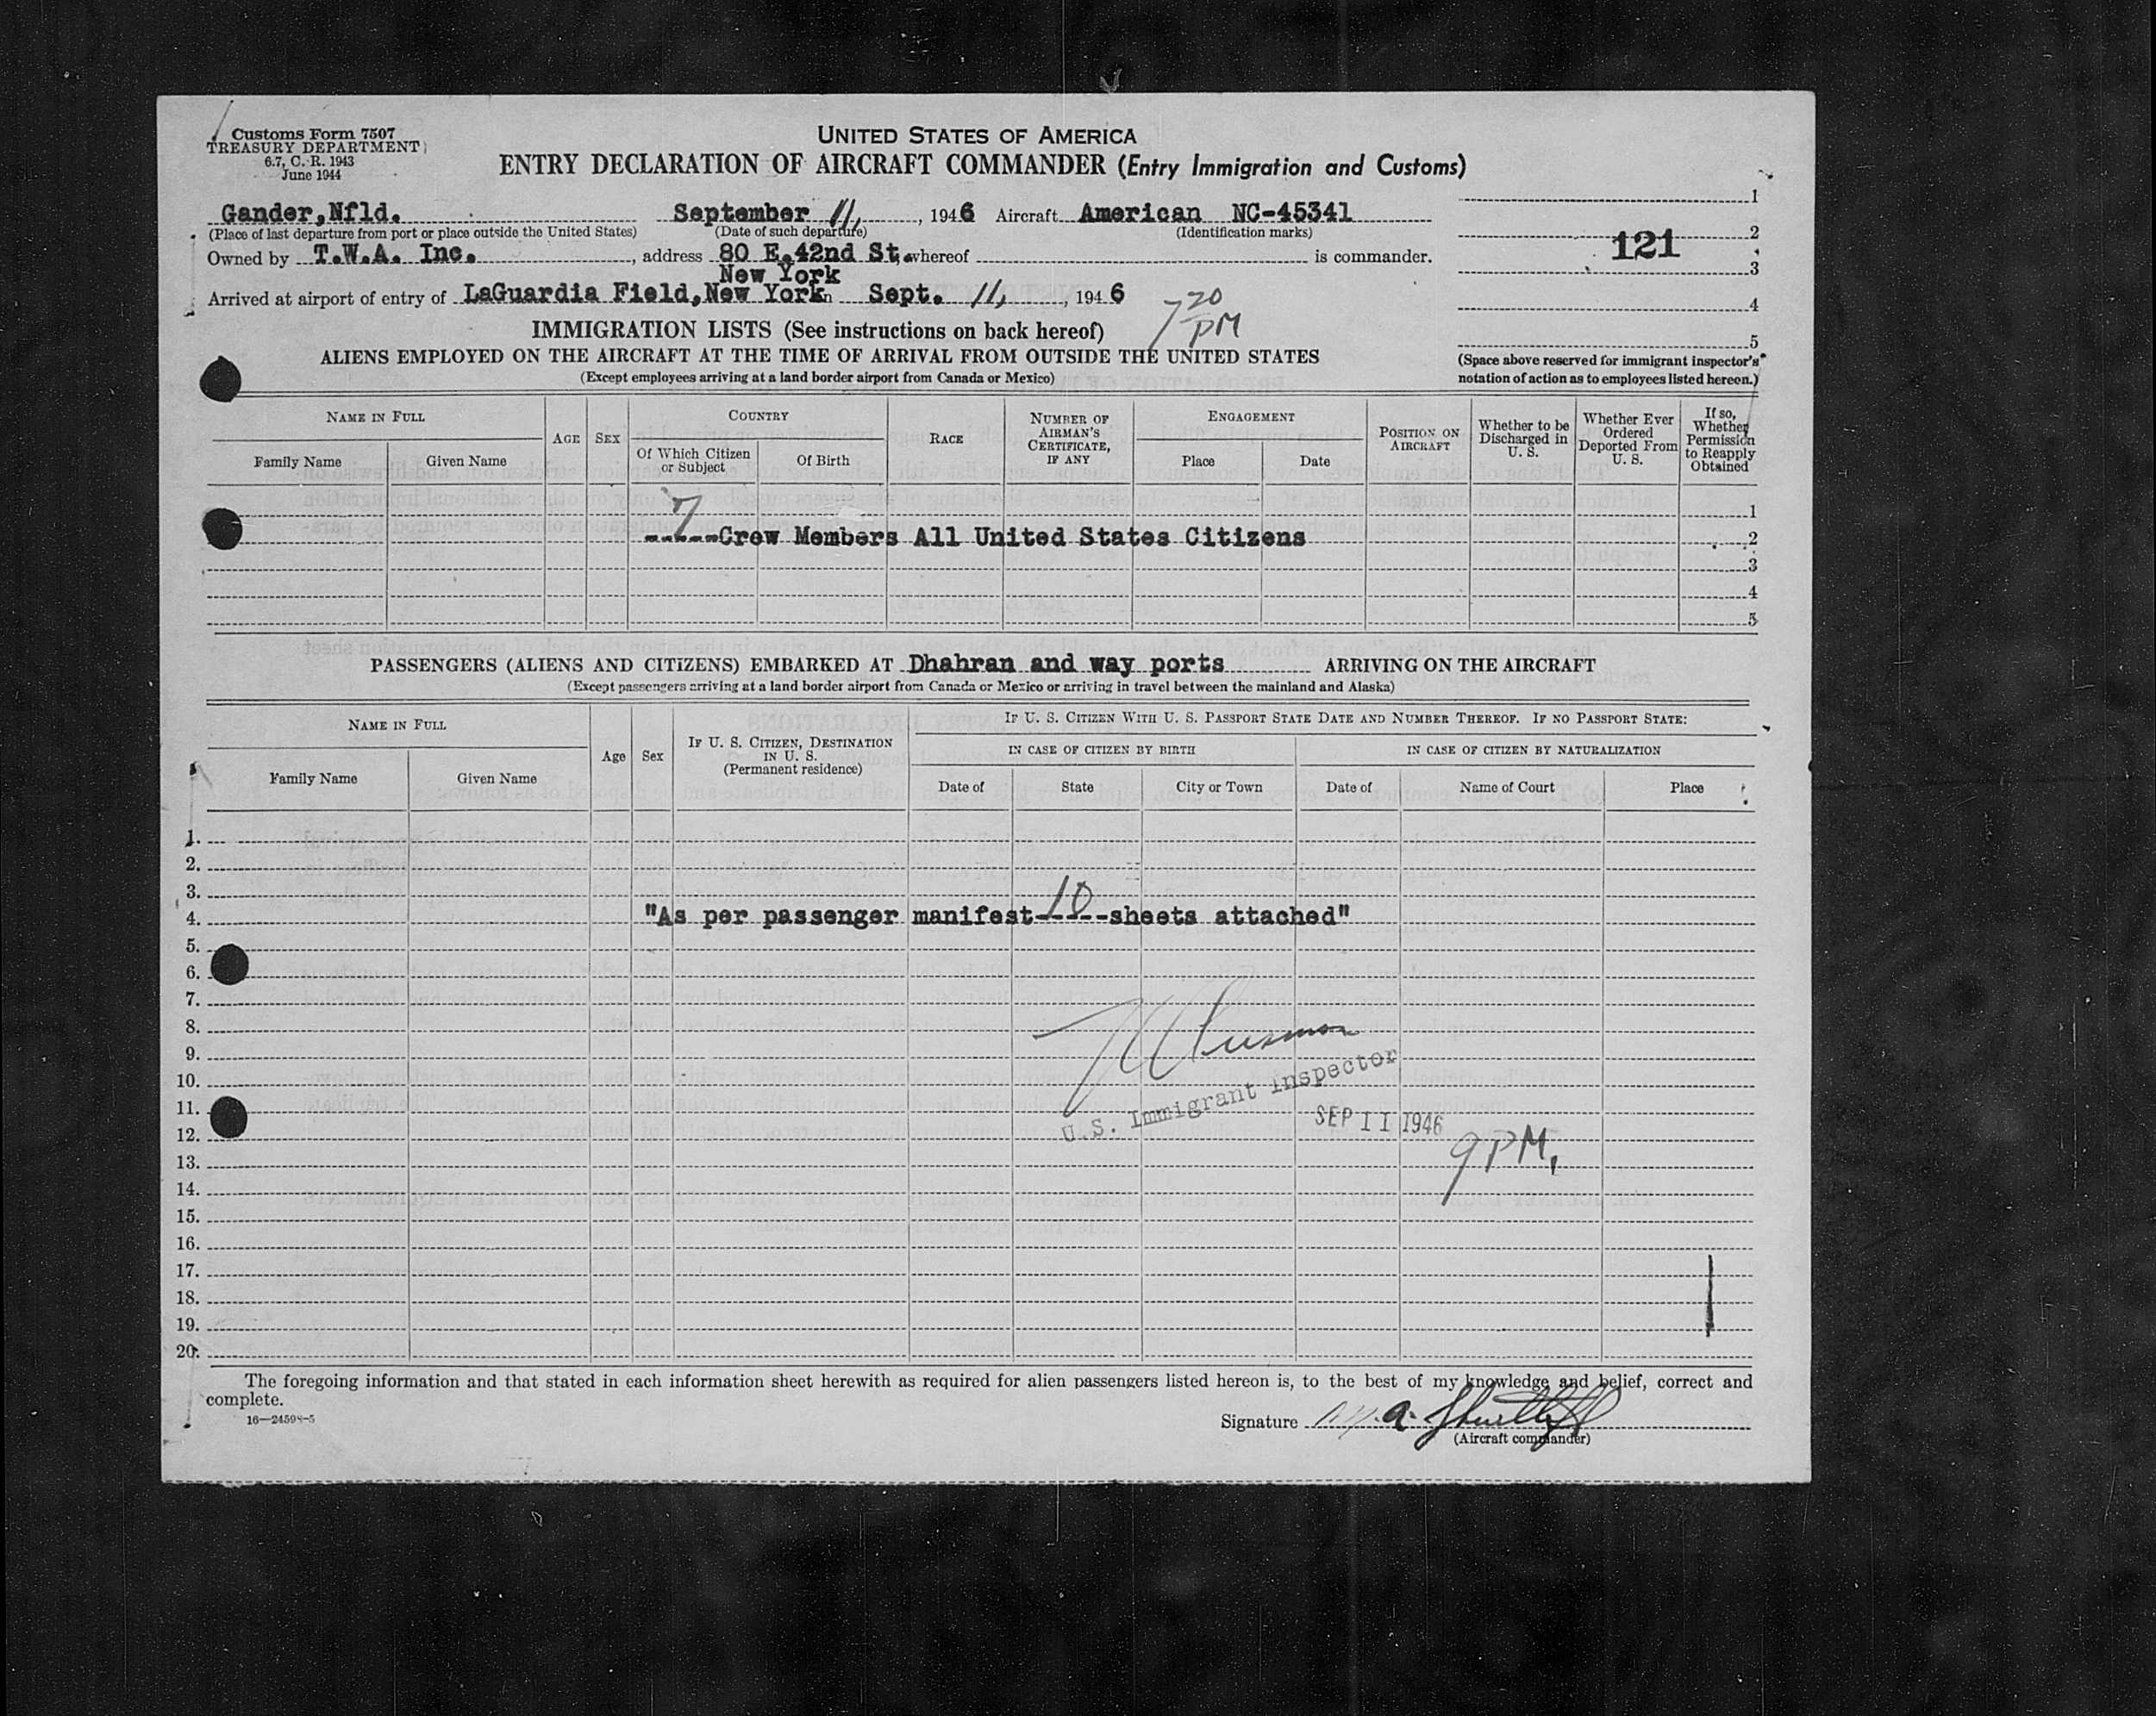 Customs Form 7507
TREASURY DEPARTMENT
6.7, C. R. 1943
June 1944
UNITED STATES OF AMERICA
ENTRY DECLARATION OF AIRCRAFT COMMANDER (Entry Immigration and Customs)
Gander,Nfld. September 11, , 1946 Aircraft American NC-45341
(Place of last departure from port or place outside the United States) (Date of such departure) (Identification marks)
Owned by T.W.A. Inc. , address 80 E.42nd St. whereof is commander.
New York
Arrived at airport of entry of LaGuardia Field,New York Sept. 11, , 1946
7 20 PM
1
2
121
3
4
5
(Space above reserved for immigrant inspector's
notation of action as to employees listed hereon.)
IMMIGRATION LISTS (See instructions on back hereof)
ALIENS EMPLOYED ON THE AIRCRAFT AT THE TIME OF ARRIVAL FROM OUTSIDE THE UNITED STATES
(Except employees arriving at a land border airport from Canada or Mexico)
NAME IN FULL
Family Name Given Name
AGE SEX
COUNTRY
Of Which Citizen or Subject Of Birth
RACE
NUMBER OF AIRMAN'S CERTIFICATE, IF ANY
ENGAGEMENT
Place Date
POSITION ON AIRCRAFT
Whether to be Discharged in U. S.
Whether Ever Ordered Deported From U. S.
If so, Whether Permission to Reapply Obtained
1
7 -----Crew Members All United States Citizens 2
3
4
5
PASSENGERS (ALIENS AND CITIZENS) EMBARKED AT Dhahran and way ports ARRIVING ON THE AIRCRAFT
(Except passengers arriving at a land border airport from Canada or Mexico or arriving in travel between the mainland and Alaska)
NAME IN FULL
Family Name Given Name
Age Sex
IF U. S. CITIZEN, DESTINATION IN U. S.
(Permanent residence)
IF U. S. CITIZEN WITH U. S. PASSPORT STATE DATE AND NUMBER THEREOF. IF NO PASSPORT STATE:
IN CASE OF CITIZEN BY BIRTH IN CASE OF CITIZEN BY NATURALIZATION
Date of State City or Town Date of Name of Court Place
1.
2.
3.
4. "As per passenger manifest 10 sheets attached"
5.
6.
7.
8.
9.
10.
11.
12.
13.
14.
15.
16.
17.
18.
19.
20.
U.S. Immigrant Inspector
SEP 11 1946
9 PM.
The foregoing information and that stated in each information sheet herewith as required for alien passengers listed hereon is, to the best of my knowledge and belief, correct and
complete.
16—24598-5
Signature
(Aircraft commander)